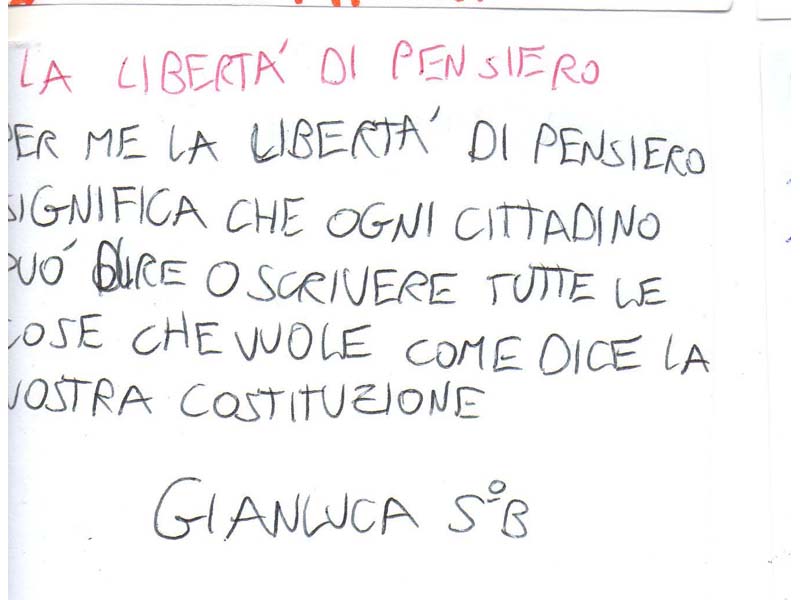 LA LIBERTÁ DI PENSIERO
PER ME LA LIBERTÁ DI PENSIERO
SIGNIFICA CHE OGNI CITTADINO
PUÓ DIRE O SCRIVERE TUTTE LE
COSE CHE VUOLE COME DICE LA
NOSTRA COSTITUZIONE
GIANLUCA 5ºB